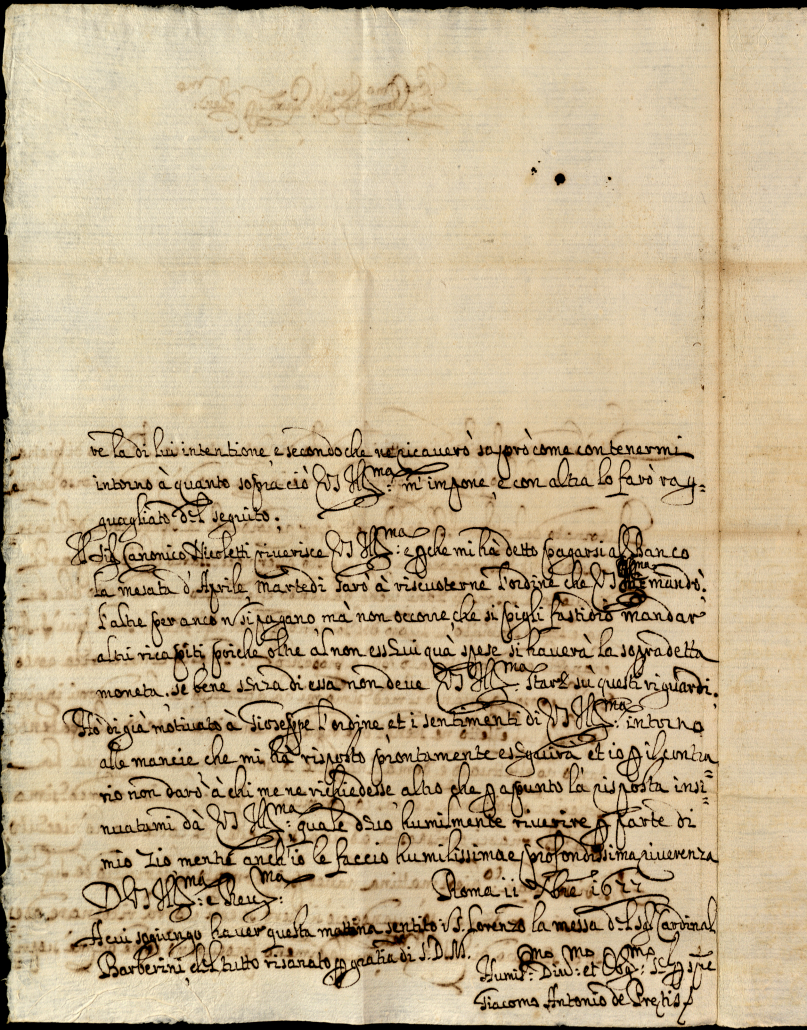 re la di lui intentione e secondo che ne ricaverò saprò come contenermi
intorno à quanto sopra ciò VS Ill:ma m'impone, e con altra lo farò rag=
guagliato del seguito.
Il Sig.r Canonico Nicoletti riverisce VS Ill:ma e perche mi hà detto pagarsi al Banco
la mesata d'Aprile, martedì sarò à riscuoterne l'ordine che VS Ill:ma mandò.
L'altre per anco n si pagano mà non occorre che si pigli fastidio mandar
altri ricapiti, poiche oltre al non esservi quà spese si haverà la sopradetta
moneta. se bene senza di essa non deve VS Ill:ma stare sù questi riguardi.
Hò di già motivato à Gioseppe l'ordine et i sentimenti di VS Ill:ma intorno
alle mancie che mi hà risposto prontamente esseguirà et io per il contra=
rio non darò à chi me ne richiedesse altro che per apunto la risposta insi=
nuatami dà VS Ill:ma quale devo humilmente riverire per parte di
mio Zio mentre anch'io le faccio humilissima e profondissima riverenza
D VS Ill:ma e Rev:ma
Roma 11 Xbre 1677
A cui sogiungo haver questa mattina sentito i S. Lorenzo la messa del Sig.r Cardinal
Barberini, del tutto risanato per gratia di S.D.M.
Humil:mo Div:mo et Obg:mo
Giacomo Antonio de Pretis